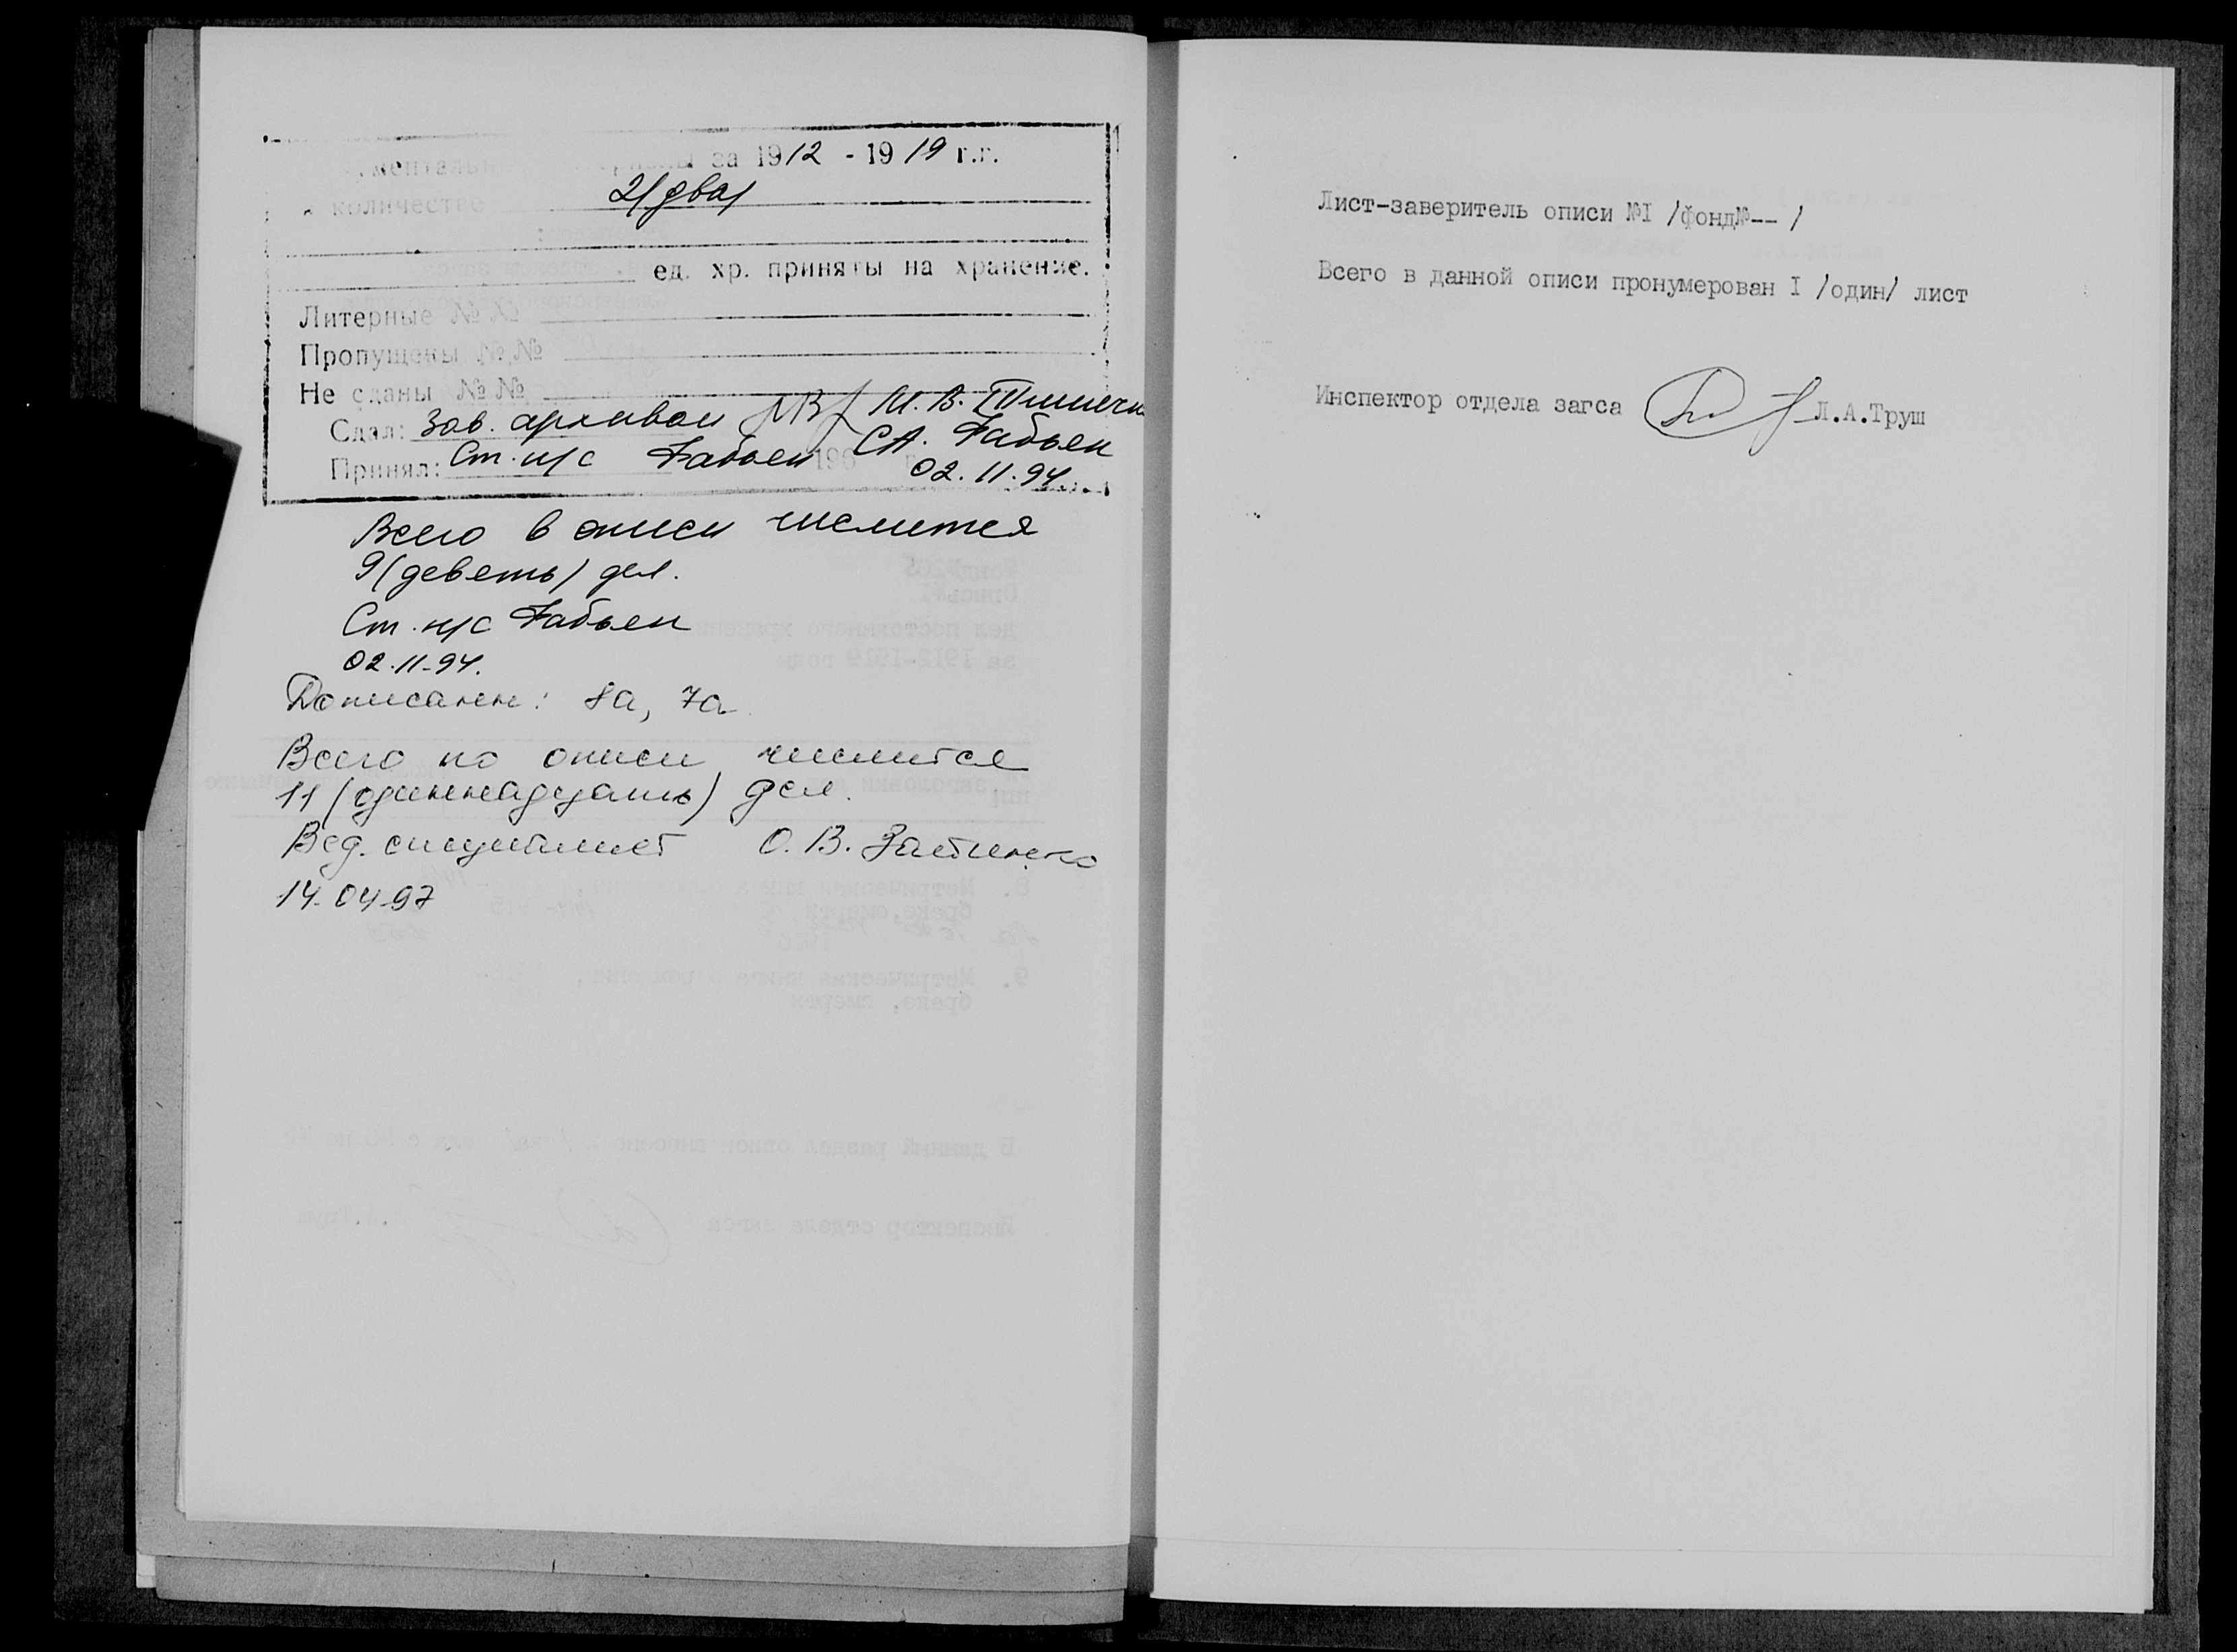 за 1912 - 1919 г.г.
количестве 2/два/
ед. хр. приняты на хранение.
Литерные №№
Пропущены №№
Не сданы №№
Сдал: Зав. архивом М.В.
Принял: Ст. н/с С.А.
196 г.
02.11.94.
Всего в описи числится
9 (девять) дел.
Ст. н/с
02.11.94.
Дописанн: 8а, 7а
Всего по описи числится
11 (одиннадцать) дел.
Вед. специалист О.В.
14.04.97
Лист-заверитель описи №I /фонд№-- /
Всего в данной описи пронумерован I /один/ лист
Инспектор отдела загса Л.А.Труш